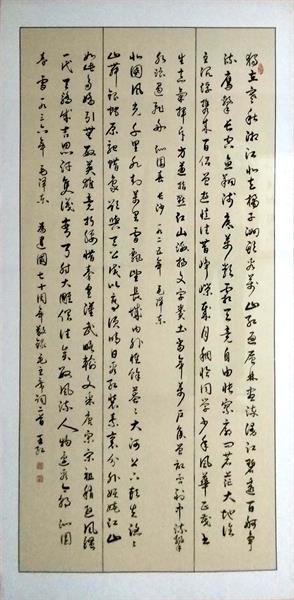 独立寒秋湘江北去橘子洲头看万山红遍层林尽染漫江碧透百舸争
流鹰击长空鱼翔浅底万类霜天竞自由怅寥廓问苍茫大地谁
主沉浮携来百侣曾游忆往昔峥嵘岁月稠恰同学少年风华正茂书
生意气挥斥方遒指点江山激扬文字粪土当年万户侯曾记否到中流击
水浪遏飞舟 沁园春 长沙 一九二五年 毛泽东
北国风光千里冰封万里雪飘望长城内外惟馀莽莽大河上下顿失滔滔
山舞银蛇原驰蜡象欲与天公试比高须晴日看红装素裹分外妖娆江山
如此多娇引无数英雄竞折腰惜秦皇汉武略输文采唐宗宋祖稍逊风骚
一代天骄成吉思汗只识弯弓射大雕俱往矣数风流人物还看今朝 沁园
春 雪 一九三六年 毛泽东 为建国七十周年敬录毛主席词二首